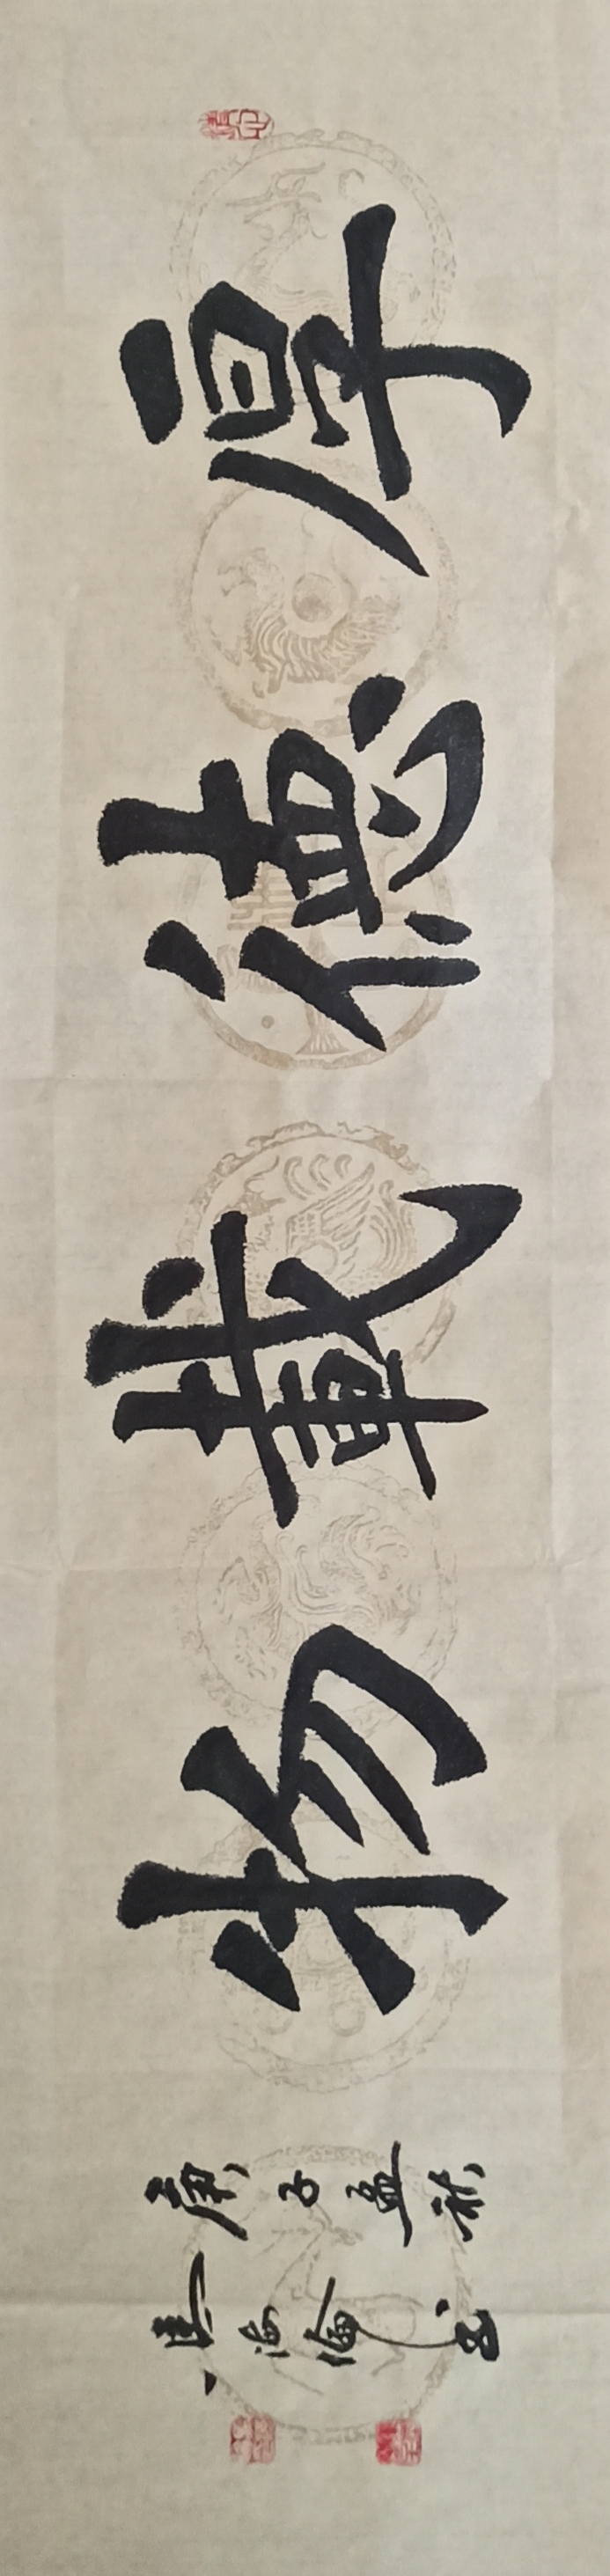 厚德載物
庚子孟秋
海倫书